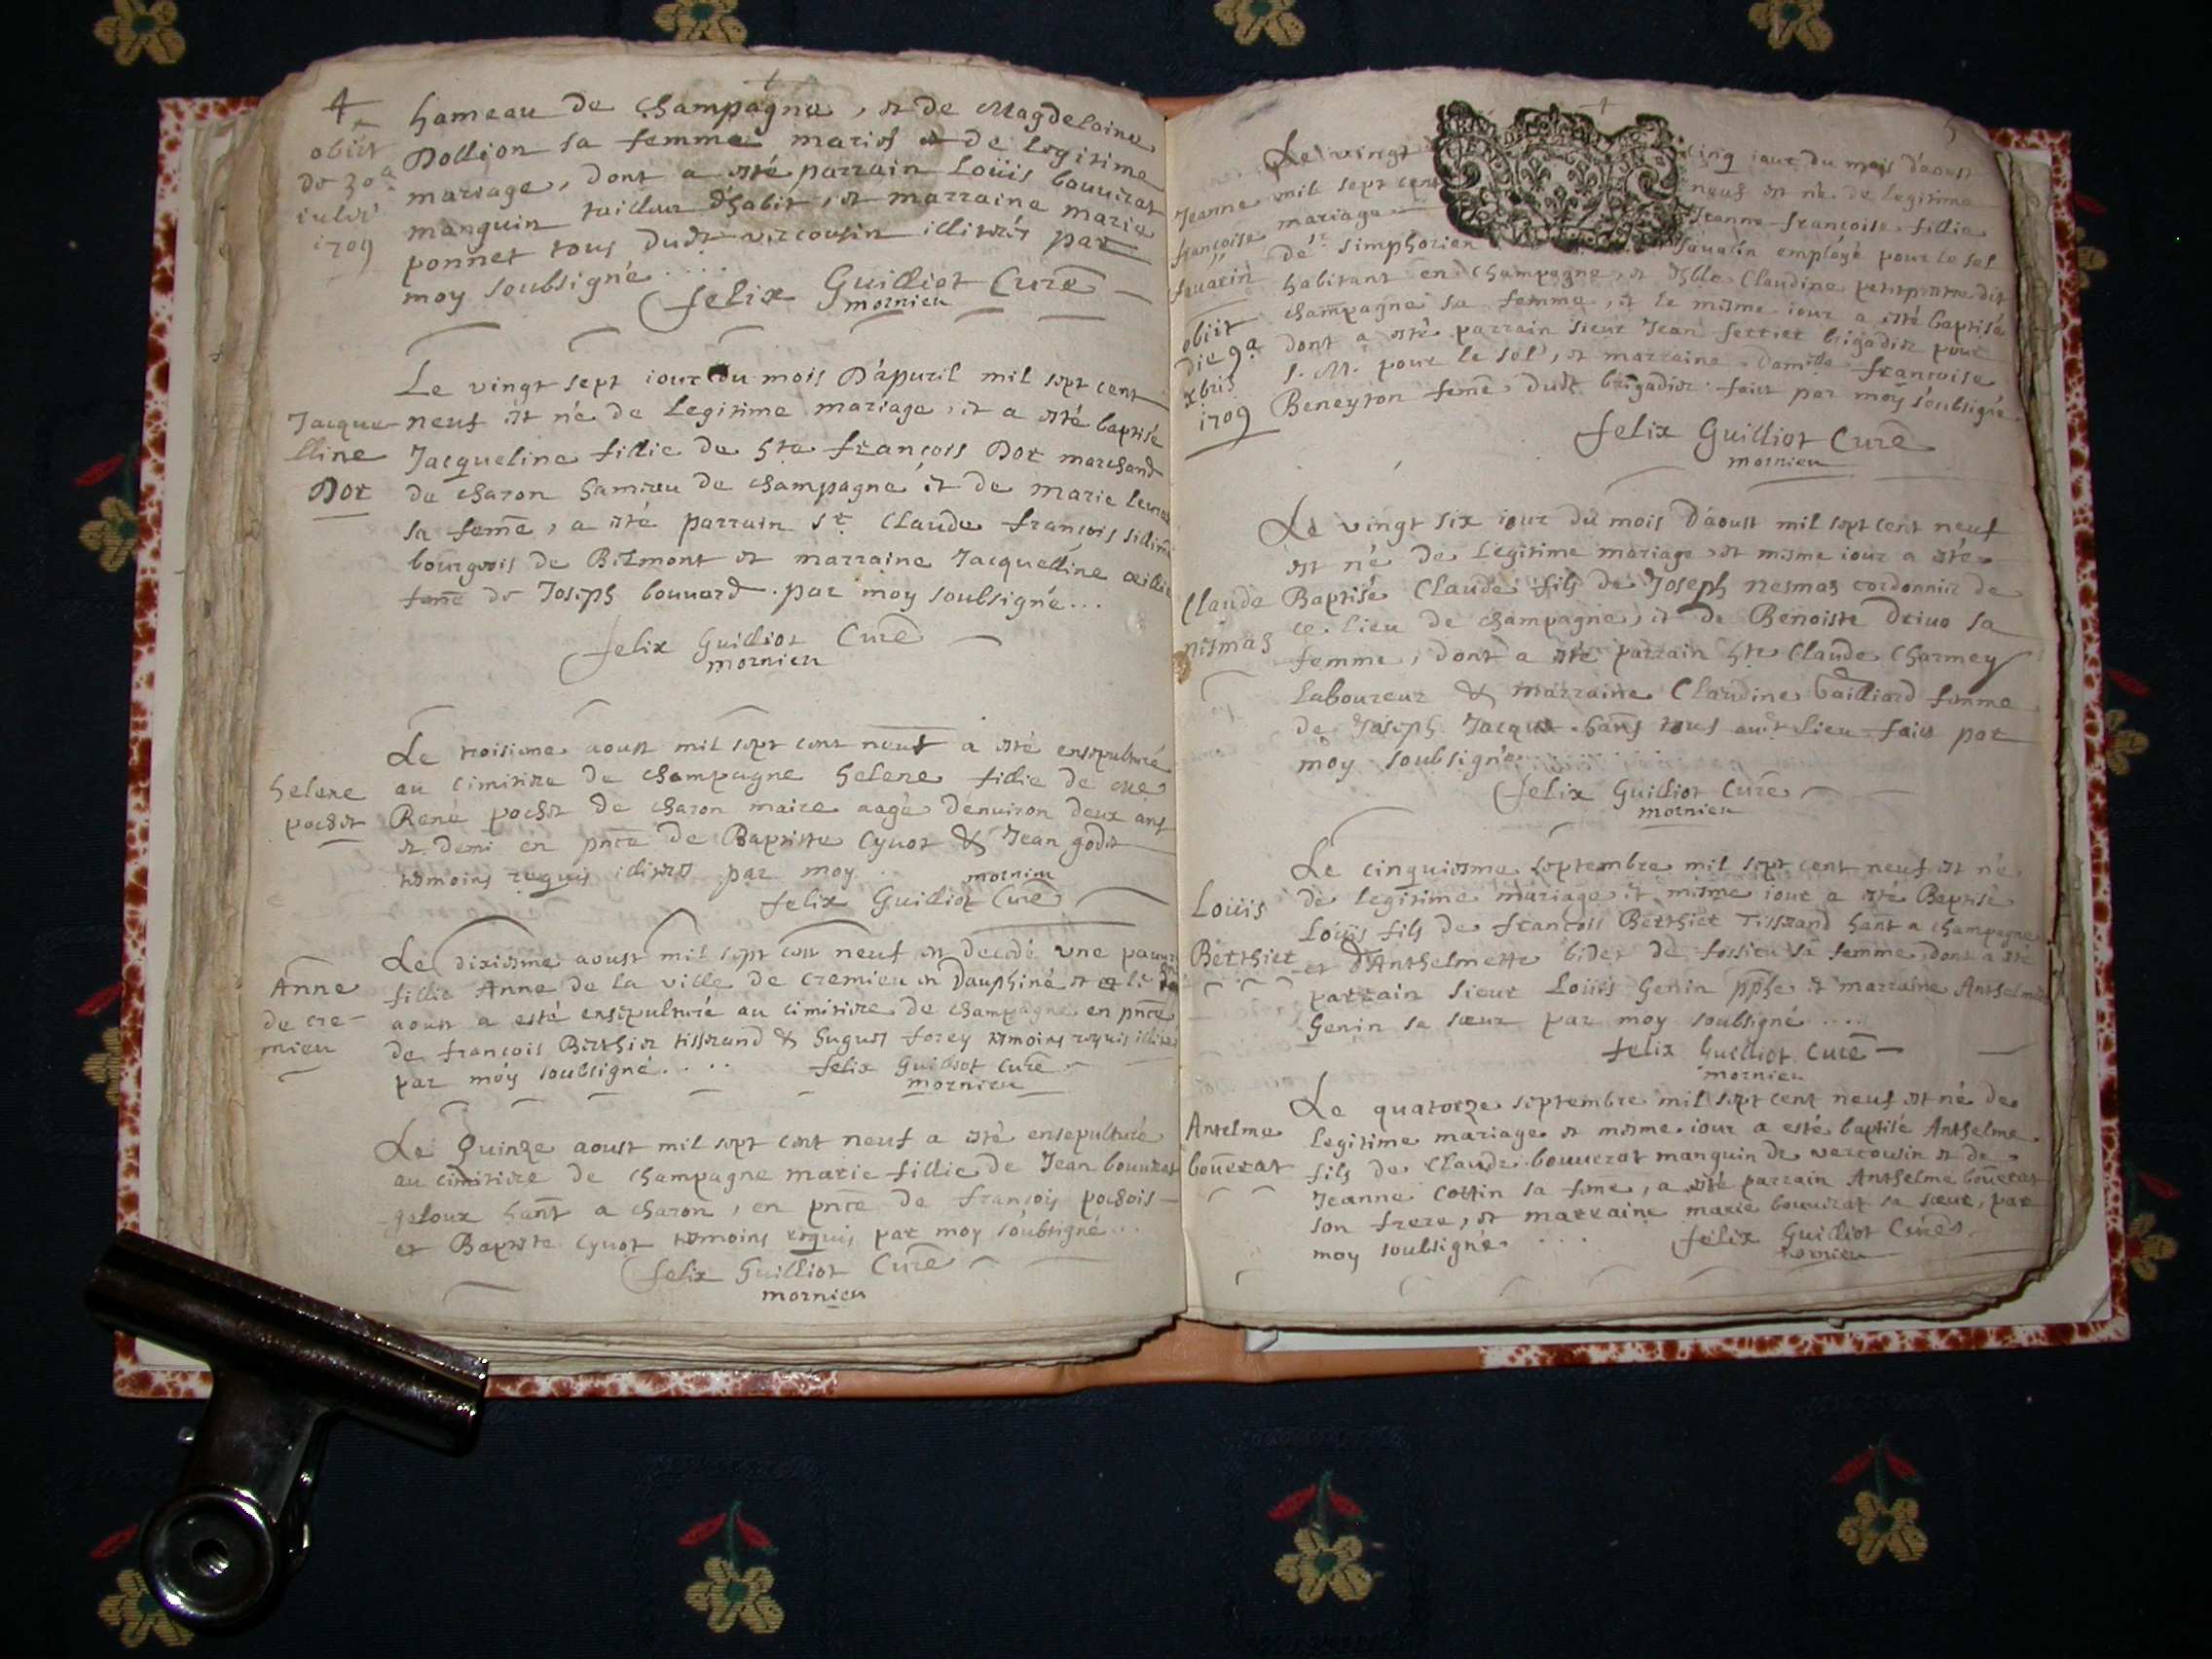 4
hameau de champagne, et de Magdelaine
Dollion sa femme mariés et de legitime
mariage, dont a esté parrain Loüis bouuerat
manguin tailleur d'habit, et marraine marie
ponnet tous dudt vercousin illiterés par
moy soubsigné....
felix Guilliot Curé
mornieu
obiit
de 30a
iulii
1709
Le vingt sept iour du mois D'apuril mil sept cent
neuf est né de Legitime mariage, et a esté baptisé
Jacqueline fillie de hte françois Dor marchand
de charon hameau de champagne et de marie
sa femē, a esté parrain Sr Claude françois
bourgois de Belmont et marraine Jacquelline
femē de Joseph bouuard. par moy soubsigné...
felix Guilliot Curé
mornieu
Jacque-
lline
Dor
Le troisieme aoust mil sept cent neuf a esté ensepulturé
au cimitiere de champagne helene fillie de me
René pochet de charon maire aagé denuiron deux ans
et demi en pnce de Baptiste Cyuot & Jean godet
temoins requis illiteres par moy..
mornieu
felix Guilliot Curé
helene
pochet
Le dixiesme aoust mil sept cent neuf est decedé vne pauure
fillie Anne de la ville de cremieu en Dauphiné et le
aoust a esté ensepulturé au cimitiere de champagne en pnce
de françois Berthier tisserand & hugues forey temoins requis illiteres
par moy soubsigné....
felix Guilliot Curé
mornieu
Anne
de cre-
mieu
Le Quinze aoust mil sept cent neuf a esté ensepulturé
au cimitiere de champagne marie fillie de Jean bouuerat
geloux hant a charon, en pnce de françois pochois
et Baptiste Cyuot temoins requis par moy soubsigné...
felix Guilliot Curé
mornieu
5
Le vingt cinq iour du mois d'aoust
mil sept cent neuf est né de legitime
mariage Jeanne-françoise fillie
de Sr simphorien sauarin employé pour le sel
habitant en champagne, et hble Claudine dit
champagne sa femme, et le mesme iour a esté baptisé
dont a esté parrain sieur Jean brigadier pour
S. M. pour le sel, et marraine damlle françoise
Beneyton femē dudt brigadier. fait par moy soubsigné
felix Guilliot Curé
mornieu
Jeanne
françoise
sauarin
obiit
die 9a
xbris
1709
Le vingt six iour du mois d'aoust mil sept cent neuf
est né de Legitime mariage et mesme iour a esté
Baptisé Claude fils de Joseph nesmas cordonnier de
ce lieu de champagne, et de Benoiste Driuo sa
femme, dont a esté parrain hte Claude Charmey
Laboureur & marraine Claudine Gailliard femme
de Joseph Jacque hans tous audt lieu fait par
moy soubsigné
felix Guilliot Curé
mornieu
Claude
nesmas
Le cinquiesme septembre mil sept cent neuf est né
de legitime mariage et mesme iour a esté Baptisé
Loüis fils de francois Berthiet Tisserand hant a champagne
et d'Anthelmette bider de fossieu sa femme, dont a esté
parrain sieur Loüis Genin pphe et marraine Anthelmette
Genin sa sœur par moy soubsigné....
felix Guilliot Curé
mornieu
Loüis
Berthiet
Le quatorze septembre mil sept cent neuf est né de
Legitime mariage et mesme iour a esté baptisé Anthelme
fils de Claude bouuerat manguin de vercousin et de
Jeanne Cottin sa femē, a esté parrain Anthelme boūerat
son frere, et marraine marie bouuerat sa sœur, par
moy soubsigné....
felix Guilliot Curé
mornieu
Antelme
boūerat